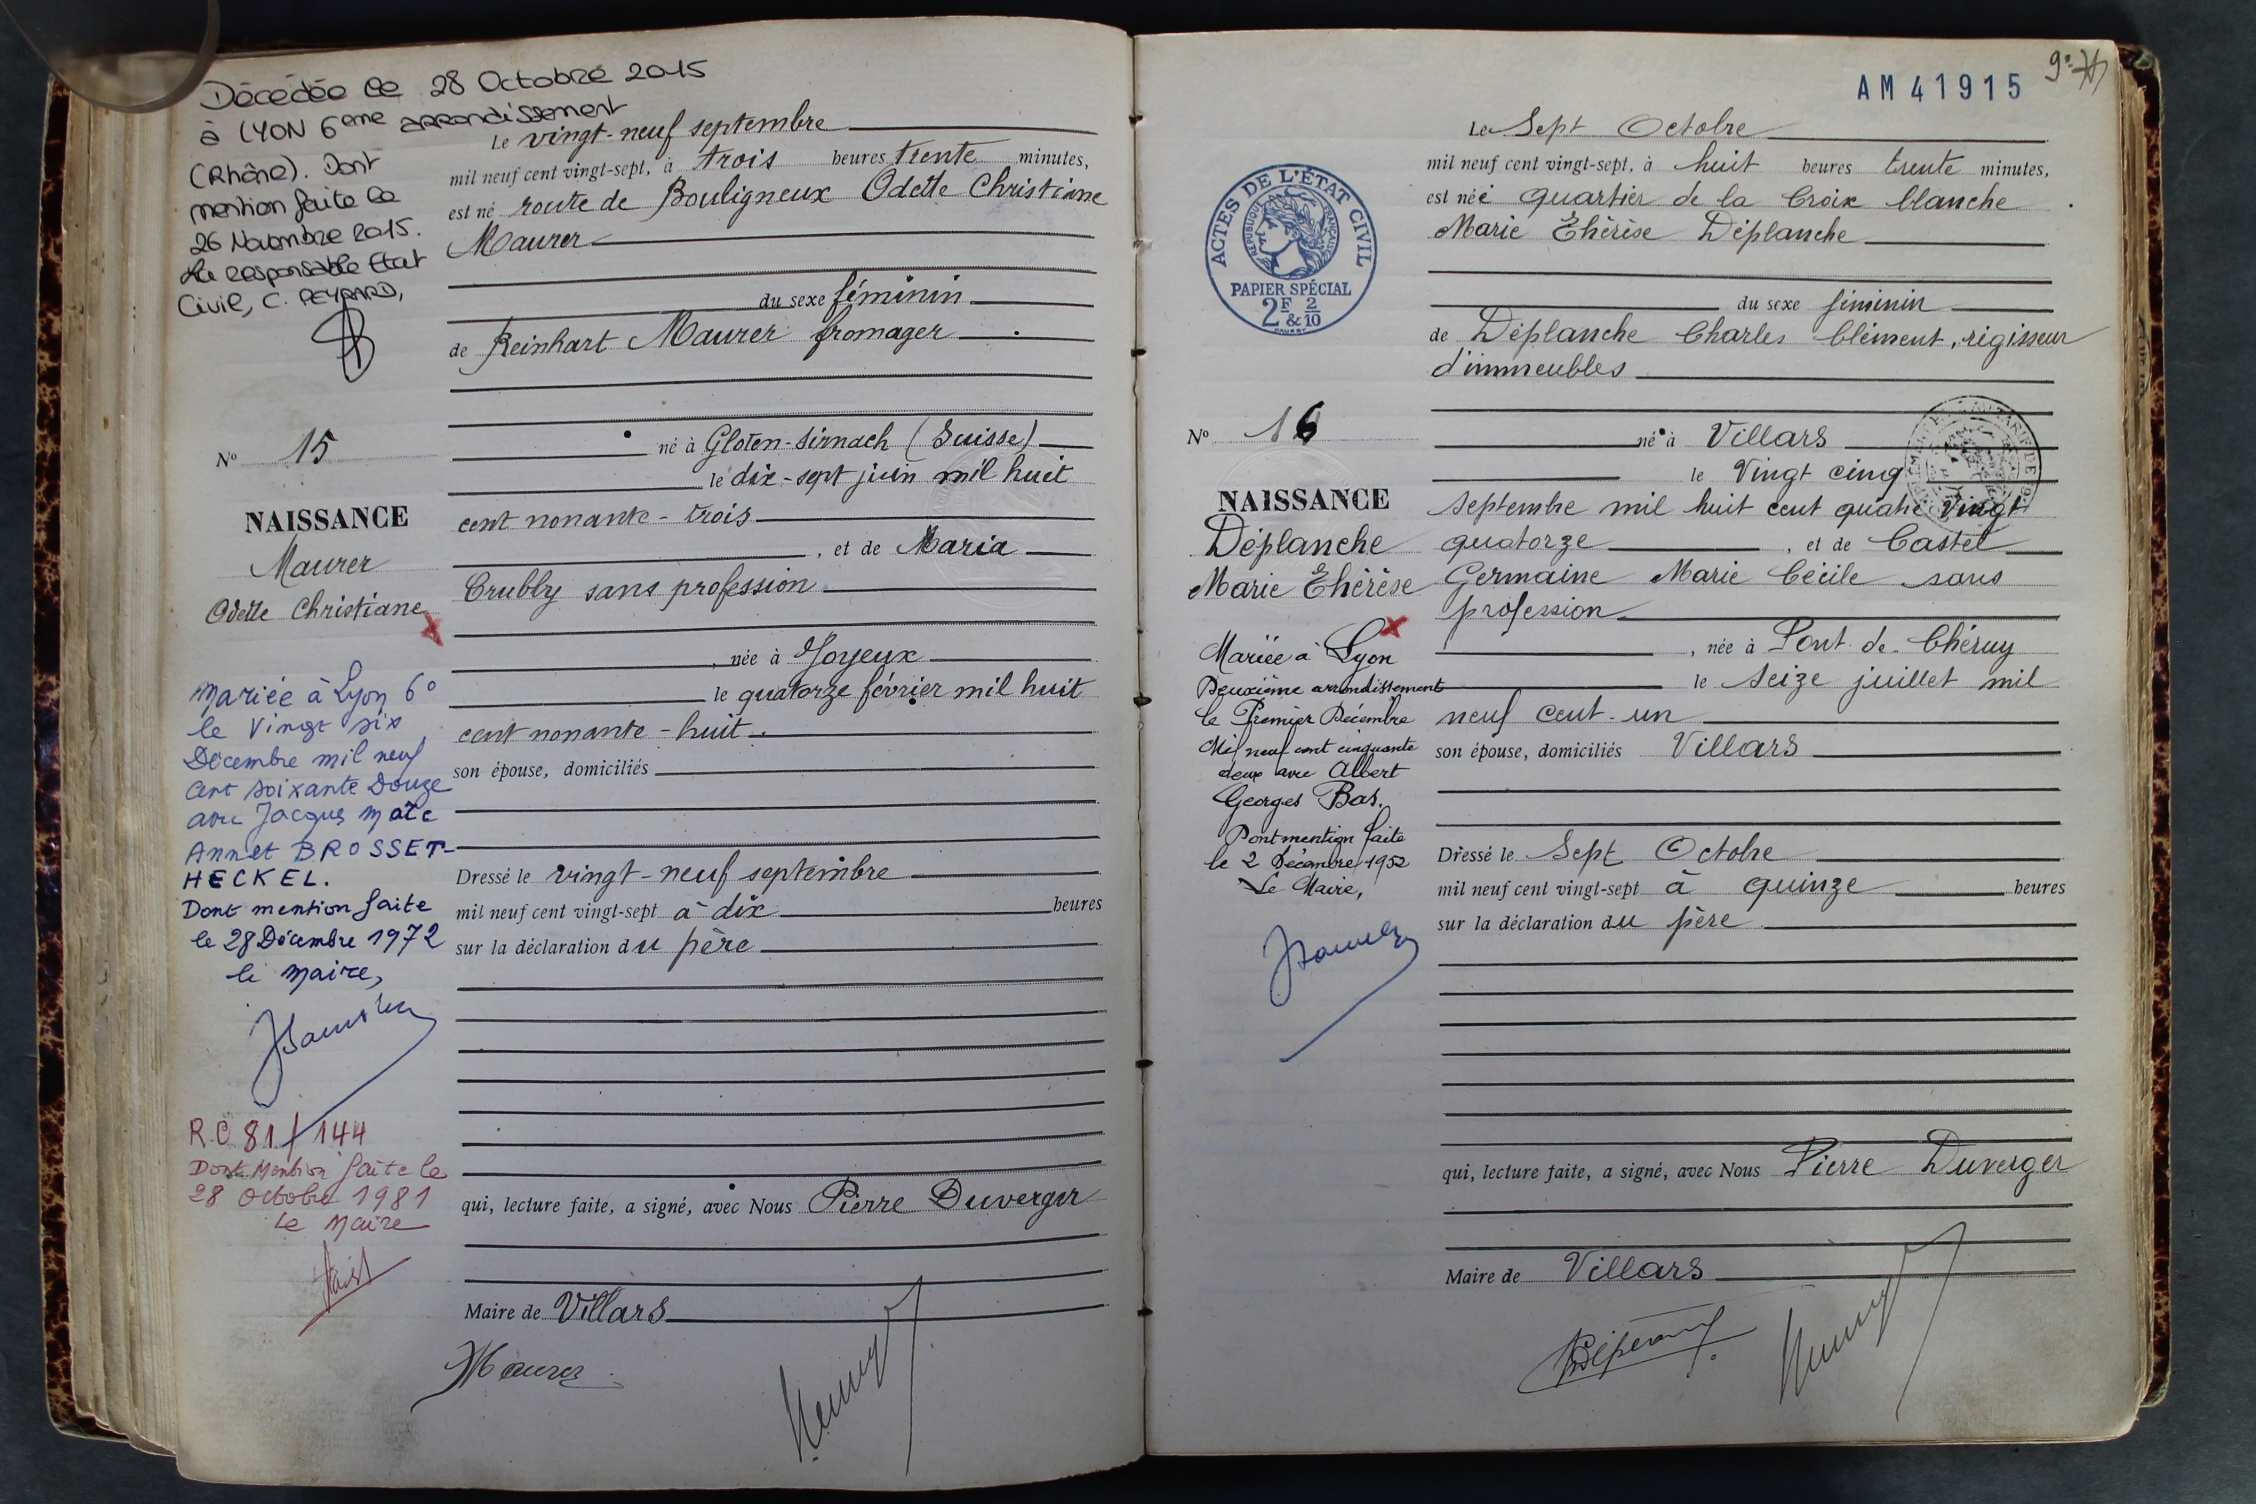 Décédée le 28 Octobre 2015
à LYON 6eme arrondissement
(Rhône). Dont
mention faite le
26 Novembre 2015.
La responsable Etat
Civil, C. PEYRARD,
N° 15
NAISSANCE
Maurer
Odette Christiane
Mariée à Lyon 6°
le Vingt six
Décembre mil neuf
cent soixante Douze
avec Jacques Marc
Annet BROSSET-
HECKEL.
Dont mention faite
le 28 Décembre 1972
le Maire,
R.C 81/144
Dont Mention faite le
28 Octobre 1981
Le Maire
Le vingt-neuf septembre
mil neuf cent vingt-sept, à trois heures trente minutes,
est né route de Bouligneux Odette Christiane
Maurer
du sexe féminin
de Reinhart Maurer fromager
né à Gloten-Sirnach (Suisse)
le dix-sept juin mil huit
cent nonante-trois
, et de Maria
Crubly sans profession
, née à Joyeux
le quatorze février mil huit
cent nonante-huit
son épouse, domiciliés
Dressé le vingt-neuf septembre
mil neuf cent vingt-sept à dix heures
sur la déclaration du père
qui, lecture faite, a signé, avec Nous Pierre Duverger
Maire de Villars
Maurer
AM 41915
ACTES DE L'ÉTAT CIVIL
RÉPUBLIQUE FRANÇAISE
PAPIER SPÉCIAL
2F & 2/10
N° 16
NAISSANCE
Déplanche
Marie Thérèse
Mariée à Lyon
Deuxième arrondissement
le Premier Décembre
Mil neuf cent cinquante
deux avec Albert
Georges Bas.
Dont mention faite
le 2 Décembre 1952
Le Maire,
Le Sept Octobre
mil neuf cent vingt-sept, à huit heures trente minutes,
est née quartier de la Croix blanche
Marie Thérèse Déplanche
du sexe féminin
de Déplanche Charles Clément, régisseur
d'immeubles
né à Villars
le Vingt cinq
septembre mil huit cent quatre vingt
quatorze , et de Castel
Germaine Marie Cécile sans
profession
, née à Pont-de-Chéruy
le seize juillet mil
neuf cent-un
son épouse, domiciliés Villars
Dressé le Sept Octobre
mil neuf cent vingt-sept à quinze heures
sur la déclaration du père
qui, lecture faite, a signé, avec Nous Pierre Duverger
Maire de Villars